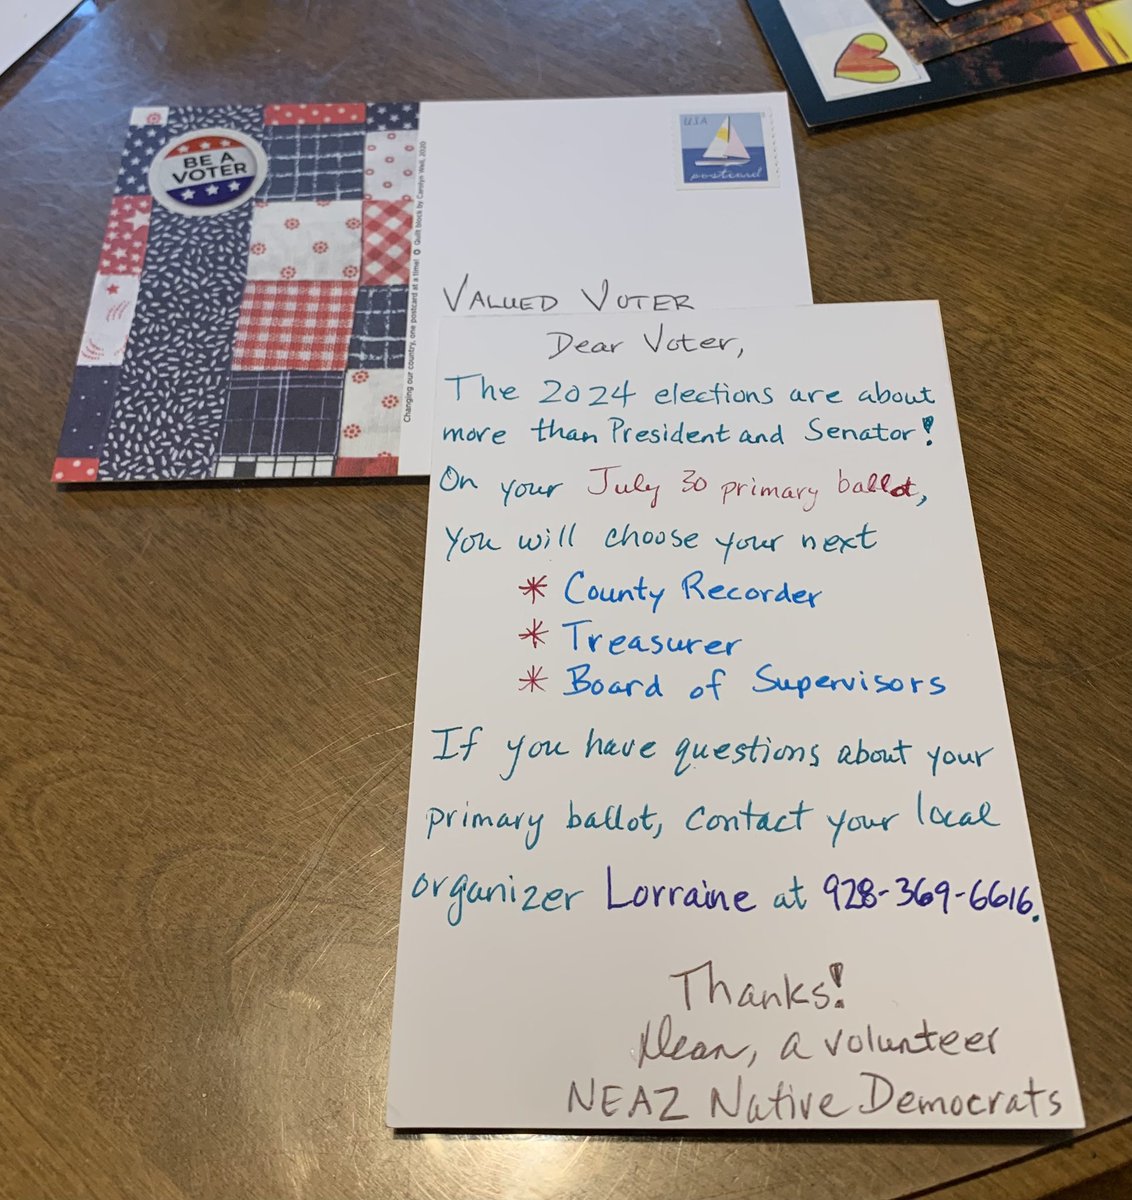 BE A
VOTER
USA
postcard
Changing our country, one postcard at a time! Quilt block by Carolyn Weil, 2020
VALUED VOTER
Dear Voter,
The 2024 elections are about
more than President and Senator!
On your July 30 primary ballot,
you will choose your next
* County Recorder
* Treasurer
* Board of Supervisors
If you have questions about your
primary ballot, contact your local
organizer Lorraine at 928-369-6616.
Thanks!
a volunteer
NEAZ Native Democrats